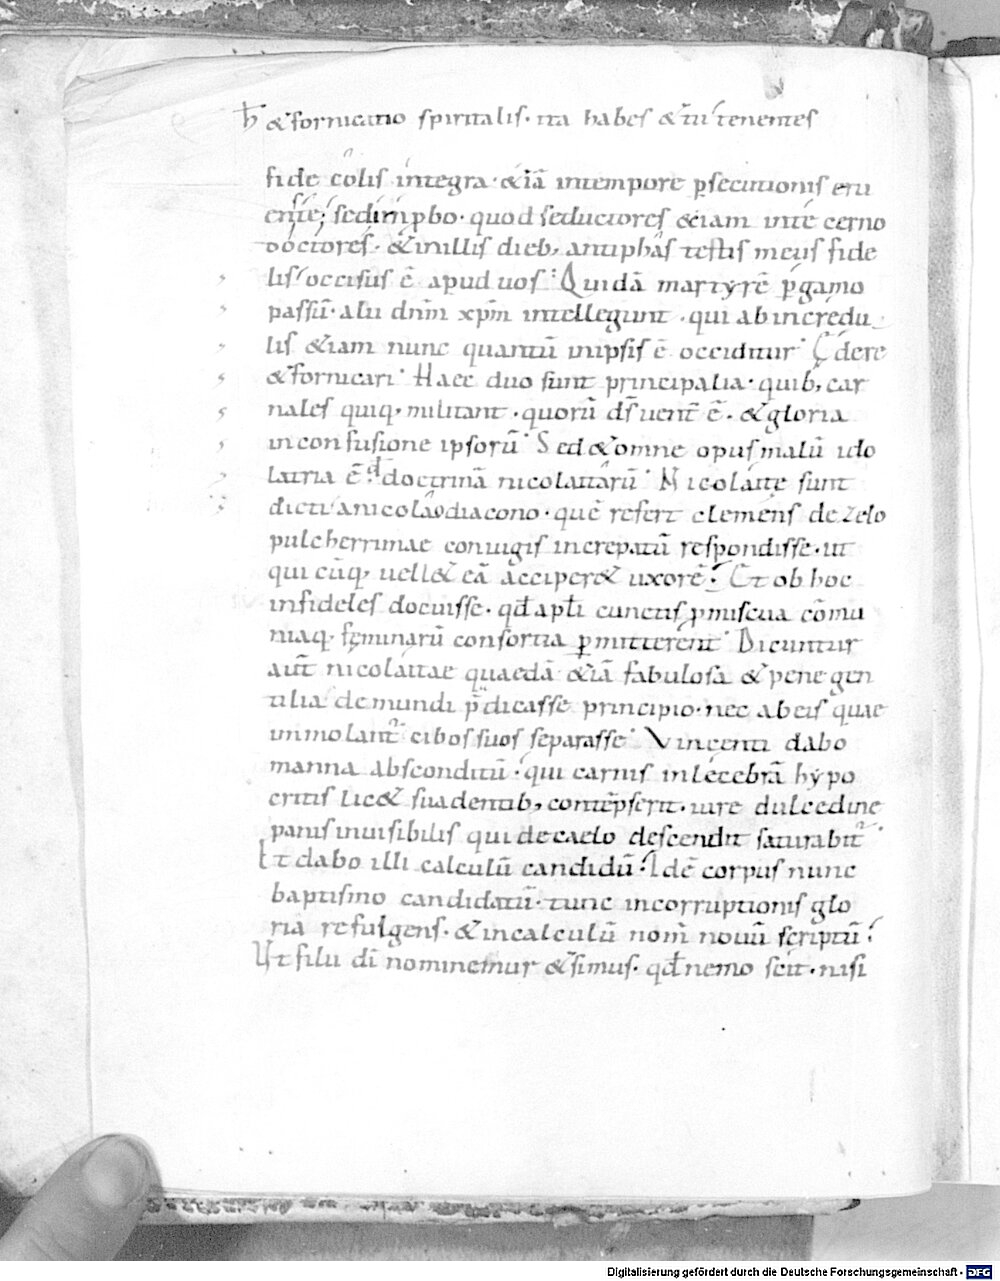 ħ &fornicatio spiritalis· ita habes & tu tenentes
fide cōlis integra· &iā intempore psecutionis eru
ente; sedimpbo· quod seductores &iam inte cerno
doctores· &inillis dieb; antiphas testis meus fide
lis occisus ē apud uos· Quidā martyrē pgamo
passū· alii dnm xpm intellegunt· qui abincredu
lis &iam nunc quantū inipsis ē occiditur· Edere
&fornicari· Haec duo sunt principalia· quib; car
nales quiq; militant· quorū ds uent ē· &gloria
inconfusione ipsorū· Sed&omne opus malū ido
latria ē· doctrinā nicolaitarū· Nicolaite sunt
dicti anicolao diacono· quē refert clemens de zelo
pulcherrimae coniugis increpatū respondisse· ut
qui cūq; uell& eā acciper& uxorē· Et ob hoc
infideles docuisse· qđ apłi cunctis pmiscua cōmu
niaq; feminarū consortia pmitterent· Dicuntur
aūt nicolaitae quaedā &iā fabulosa & pene gen
tilia de mundi p̄dicasse principio· nec ab eis quae
immolant cibos suos separasse· Vincenti dabo
manna absconditū· qui carnis inlecebrā hypo
critis lic& suadentib; contēpserit· iure dulcedine
panis inuisibilis qui de caelo descendit saturabit
Et dabo illi calculū candidū· Idē corpus nunc
baptismo candidatū· tunc incorruptionis glo
ria refulgens· &incalculū nom nouū scriptū·
Ut filii dī nominemur & simus· qđ nemo scit· nisi
Digitalisierung gefördert durch die Deutsche Forschungsgemeinschaft - DFG